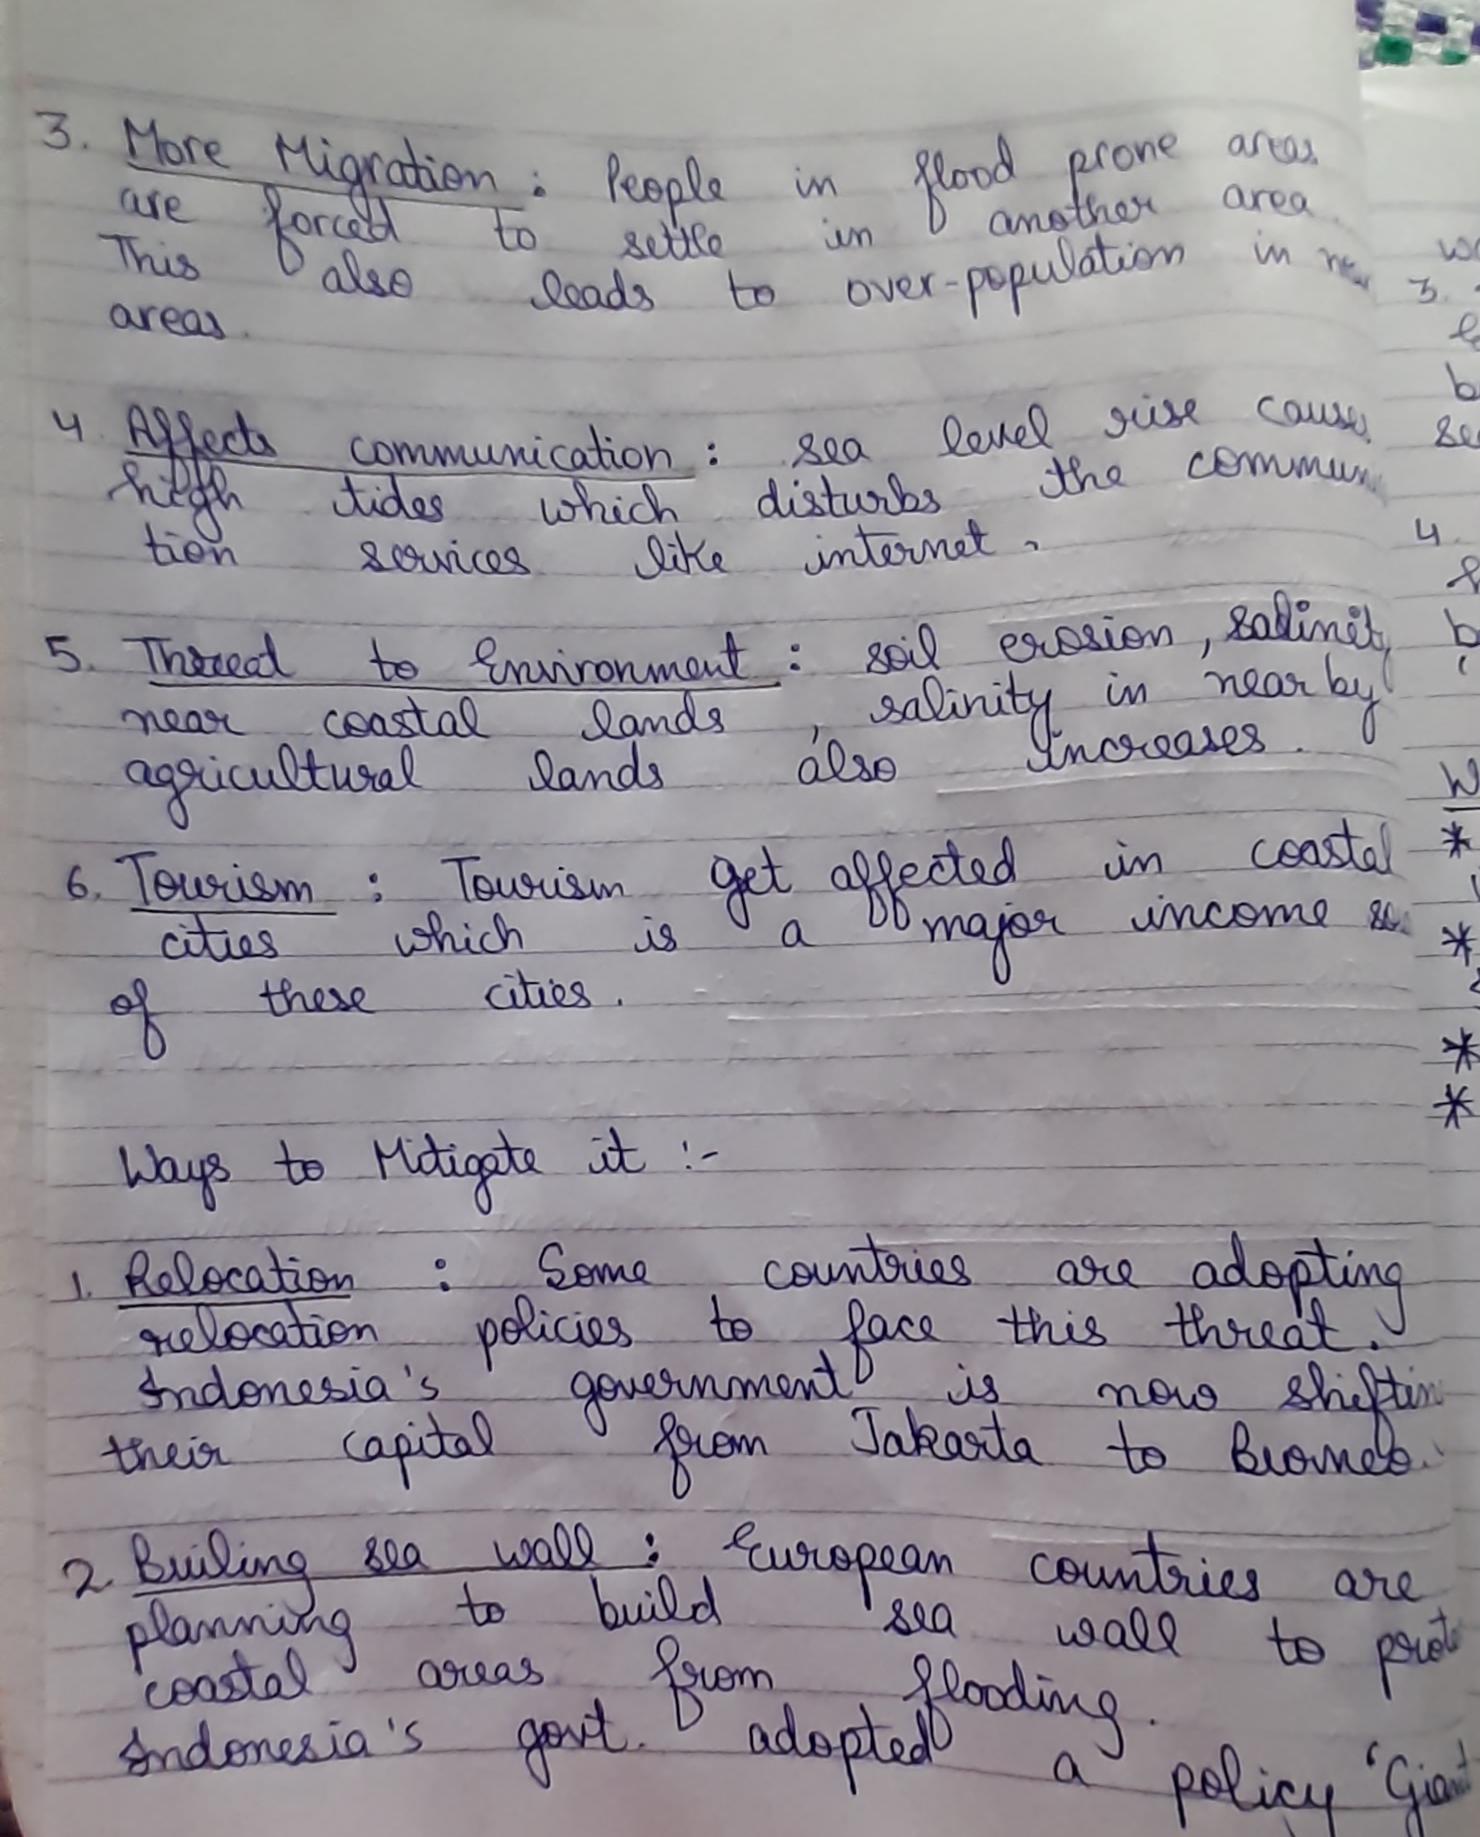 3. More Migration : People in flood prone areas
are forced to settle in another area.
This also leads to over-population in
areas.
4. Affects communication : sea level rise causes
high tides which disturbs the commun
tion services like internet.
5. Thread to Environment : soil erosion, salinity
near coastal lands , salinity in nearby
agricultural lands also increases.
6. Tourism : Tourism get affected in coastal
cities which is a major income
of these cities.
Ways to Mitigate it :-
1. Relocation : Some countries are adopting
relocation policies to face this threat.
Indonesia's government is now shiftin
their capital from Jakarta to Borneo.
2. Builing sea wall : European countries are
planning to build sea wall to prot
coastal areas from flooding.
Indonesia's govt. adopted a policy 'Giant
3.
b
se
4.
b
*
*
*
*